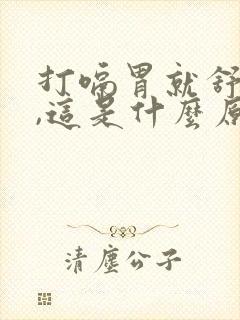 打嗝胃就舒
,這是什麼原
清塵公子